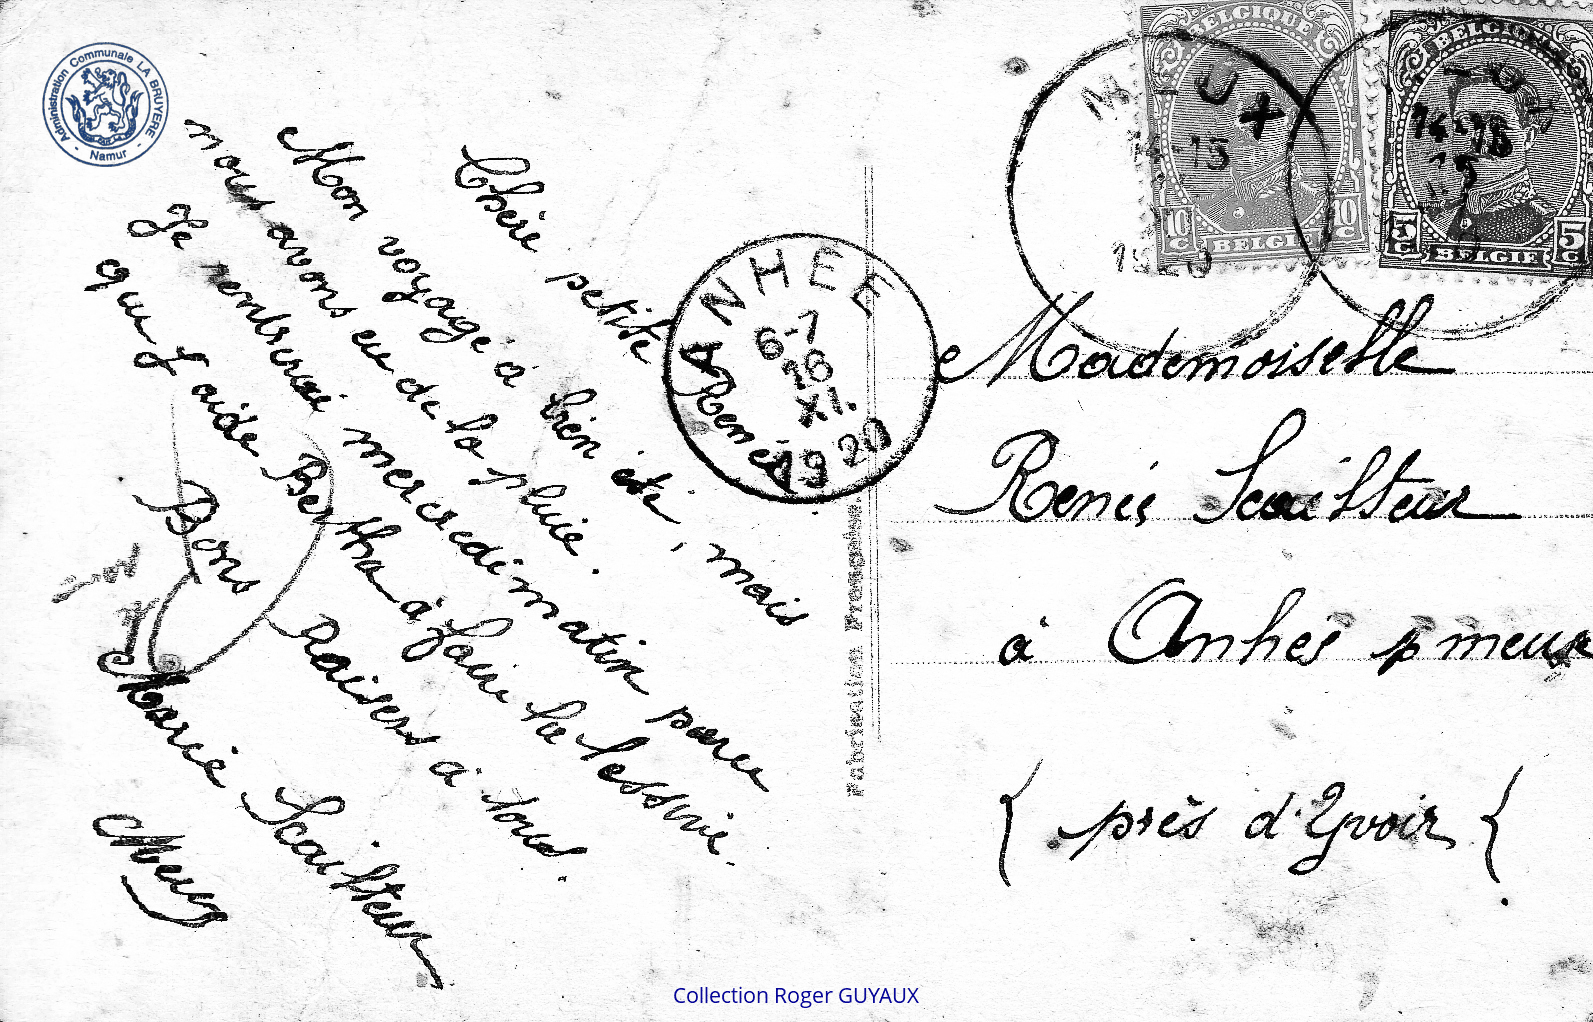 Administration Communale LA BRUYERE - Namur -
Chère petite Renée
Mon voyage à bien été, mais
nous avons eu de la pluie.
Je rentrerai mercredi matin parce
que j'aide Bertha à faire la lessive.
Bons Baisers à tous.
Marie Scailteur
Meux
ANHEE
6-7
16
XI.
1920
Fabrication Française.
BELGIQUE
10 C 10 C
BELGIE
BELGIQUE
5 C 5 C
BELGIE
MEUX
Mademoiselle
Renée Scailteur
à Anhée s/ meuse
{ près d'Yvoir {
Collection Roger GUYAUX